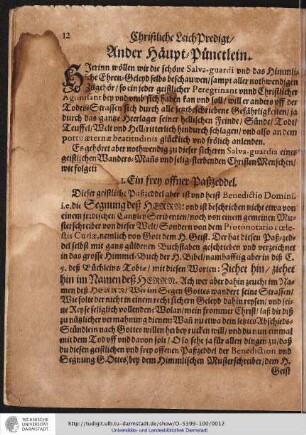 12
Christliche Leich Predigt/
Ander Häupt-Pünctlein.
HJerinn wöllen wir die schöne Salva-guardi vnd das Himmlische
Ehren-Geleyd selbs beschawen/ sampt aller nothwendigen
Zugehör/ so ein jeder geistlicher Peregrinant vnnd Christlicher
bey vnd vmb sich haben kan vnd soll/ will er anders off der
Todes-Strassen sich durch alle Gefährligkeiten/ ja
durch das gantze Heerlager seiner hellischen Feinde/ Sünde/ Todt/
Teuffel/ Welt vnd Hell ritterlich hindurch schlagen/ vnd also an dem
portu æternæ beatitudinis glücklich vnd frölich anlenden.
Es gehöret aber nothwendig zu dieser sicheren Salva-guardia eines
geistlichen Wanders-Mañs vnd selig-sterbenden Christen Menschen/
wie folget:
1. Ein frey offner Paßzeddel.
Dieser geistliche Paßzeddel aber ist vnd heist Benedictio Domini,
i.e. die Segnung deß HERRN: vnd ist beschrieben nicht etwa von
einem jrrdischen Cantzley Scribenten/ noch von einem gemeinen Musterschreiber
von dieser Welt: Sondern von dem Protonotario cœlestis
Curiæ, nemlich von Gott dem H. Geist. Der hat diesen Paßzeddel
selbst mit gantz güldenen Buchstaben geschrieben vnd verzeichnet
in das grosse Himmel-Buch der H. Bibel/ nambhafftig aber in deß C.
5. deß Büchleins Tobiæ/ mit diesen Worten: Ziehet hin/ ziehet
hin im Namen deß HERRN. Ach wer aber dahin zeucht im Namen
deß HERRN: Wer im Segen Gottes wandert seine Strassen/
Wie solte der nicht in einem recht sichern Geleyd dahin reysen/ vnd seine
Reyse seliglich vollenden? Wolan/ mein frommer Christ/ laß dir diß
zu täglicher vermahnung dienen: Wañ nu etwa dein letztes Abschieds-Stündlein
nach Gottes willen herbey rucken will/ vnd du nun einmal
mit dem Tod off vnd davon solt/ O so sehe ja für allen dingen zu/ daß
du diesen geistlichen vnd frey offenen Paßzeddel der Benediction vnd
Segnung Gottes/ bey dem Himmlischen Musterschreiber/ dem H.
Geist
TECHNISCHE
UNIVERSITÄT
DARMSTADT
http://tudigit.ulb.tu-darmstadt.de/show/O-5399-100/0012
Universitäts- und Landesbibliothek Darmstadt